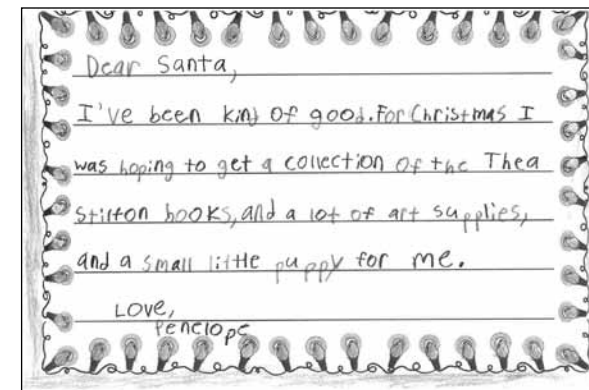 Dear Santa,
I've been kind of good. For Christmas I
was hoping to get a collection of the Thea
Stilton books, and a lot of art supplies,
and a small little puppy for me.
Love,
Penelope